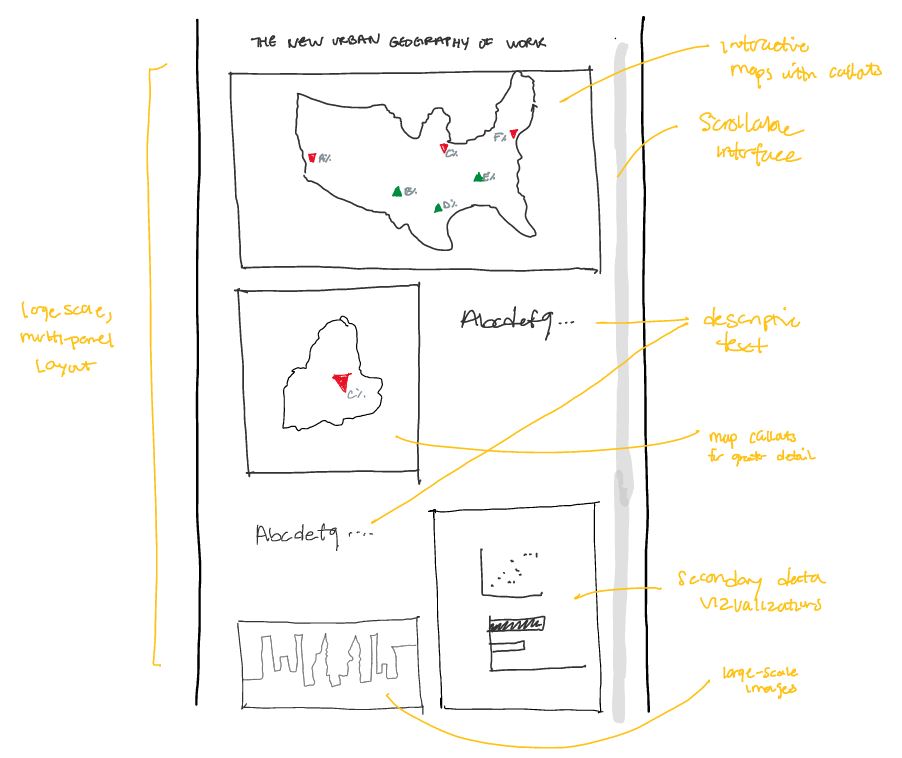 THE NEW URBAN GEOGRAPHY OF WORK
interactive
maps with callouts
Scrollable
interface
A%
B%
C%
D%
E%
F%
large scale,
multi-panel
layout
Abcdefg...
descriptive
text
C%
map callouts
for greater detail
Abcdefg....
Secondary data
vizualizations
large-scale
images